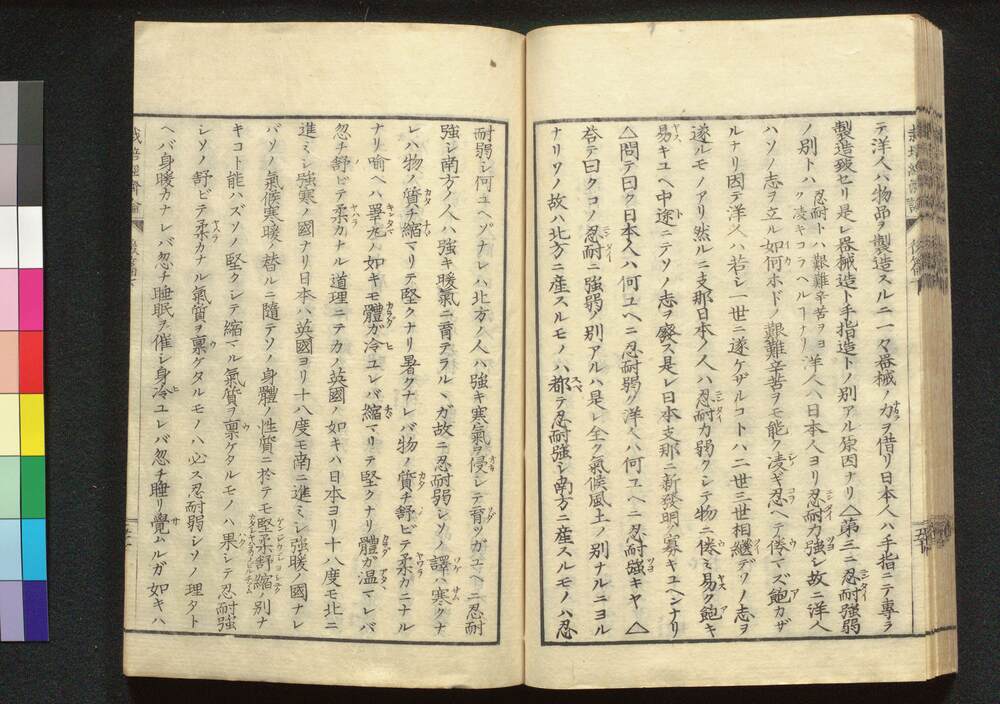 テ洋人ハ物品ヲ製造スルニ一々器械ノ力ヲ借リ日本人ハ手指ニテ專ラ
製造致セリ是レ器械造ト手指造トノ別アル原因ナリ△第三ニ忍耐強弱
ノ別トハ忍耐トハ艱難辛苦ヲヨク凌キコラヘルヿナリ洋人ハ日本人ヨリ忍耐力強シ故ニ洋人
ハソノ志ヲ立ル如何ホドノ艱難辛苦ヲモ能ク凌ギ忍ヘテ倦マズ飽カザ
ルナリ因テ洋人ハ若シ一世ニ遂ゲザルコトハ二世三世相繼デソノ志ヲ
遂ルモノアリ然ルニ支那日本ノ人ハ忍耐力弱クシテ物ニ倦ミ易ク飽キ
易キユヘ中途ニテソノ志ヲ廢ス是レ日本支那ニ新發明ノ寡キユヘンナリ
△問テ曰ク日本人ハ何ユヘニ忍耐弱グ洋人ハ何ユヘニ忍耐強キヤ△
答テ曰クコノ忍耐ニ強弱ノ別アルハ是レ全ク氣候風土ノ別ナルニヨル
ナリソノ故ハ北方ニ産スルモノハ都テ忍耐強シ南方ニ産スルモノハ忍
耐弱シ何ユヘゾナレハ北方ノ人ハ強キ寒氣ヲ侵シテ育ツガユヘニ忍耐
強シ南方ノ人ハ強キ暖氣ニ育テラルヽガ故ニ忍耐弱シソノ譯ハ寒クナ
レハ物ノ質チ縮マリテ堅クナリ暑クナレバ物ノ質チ舒ビテ柔カニナル
ナリ喩ヘハ睪丸ノ如キモ體ガ冷ユレバ縮マリテ堅クナリ體ガ温マレバ
忽チ舒ビテ柔カナル道理ニテカル英國ノ如キハ日本ヨリ十八度モ北ニ
進ミシ強寒ノ國ナリ日本ハ英國ヨリ十八度モ南ニ進ミシ強暖ノ國ナレ
バソノ氣候寒暖ノ替ルニ隨テソノ身體ノ性質ニ於テモ堅柔舒縮ノ別ナ
キコト能ハズソノ堅クシテ縮マル氣質ヲ稟ケタルモノハ果シテ忍耐強
シソノ舒ビテ柔カナル氣質ヲ稟ケタルモノハ必ス忍耐弱シソノ理タト
ヘバ身暖カナレバ忽チ睡眠ヲ催シ身冷ユレバ忽チ睡リ覺ムルガ如キハ